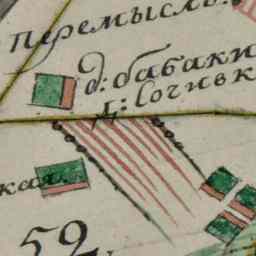 Перемысль:
д: бабаки
г: Сочивк
кая.
52.